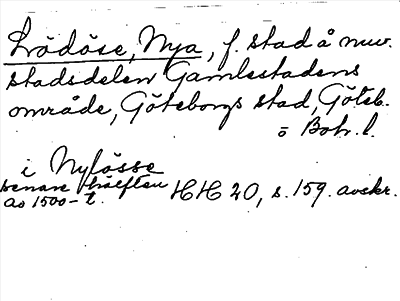 Lödöse, Nya, f. stad å nuv.
stadsdelen Gamlestadens
område, Göteborgs stad, Göteb.
o Boh. l.
i Nylösse
senare hälften
av 1500-t. HH 20, s. 159. avskr.